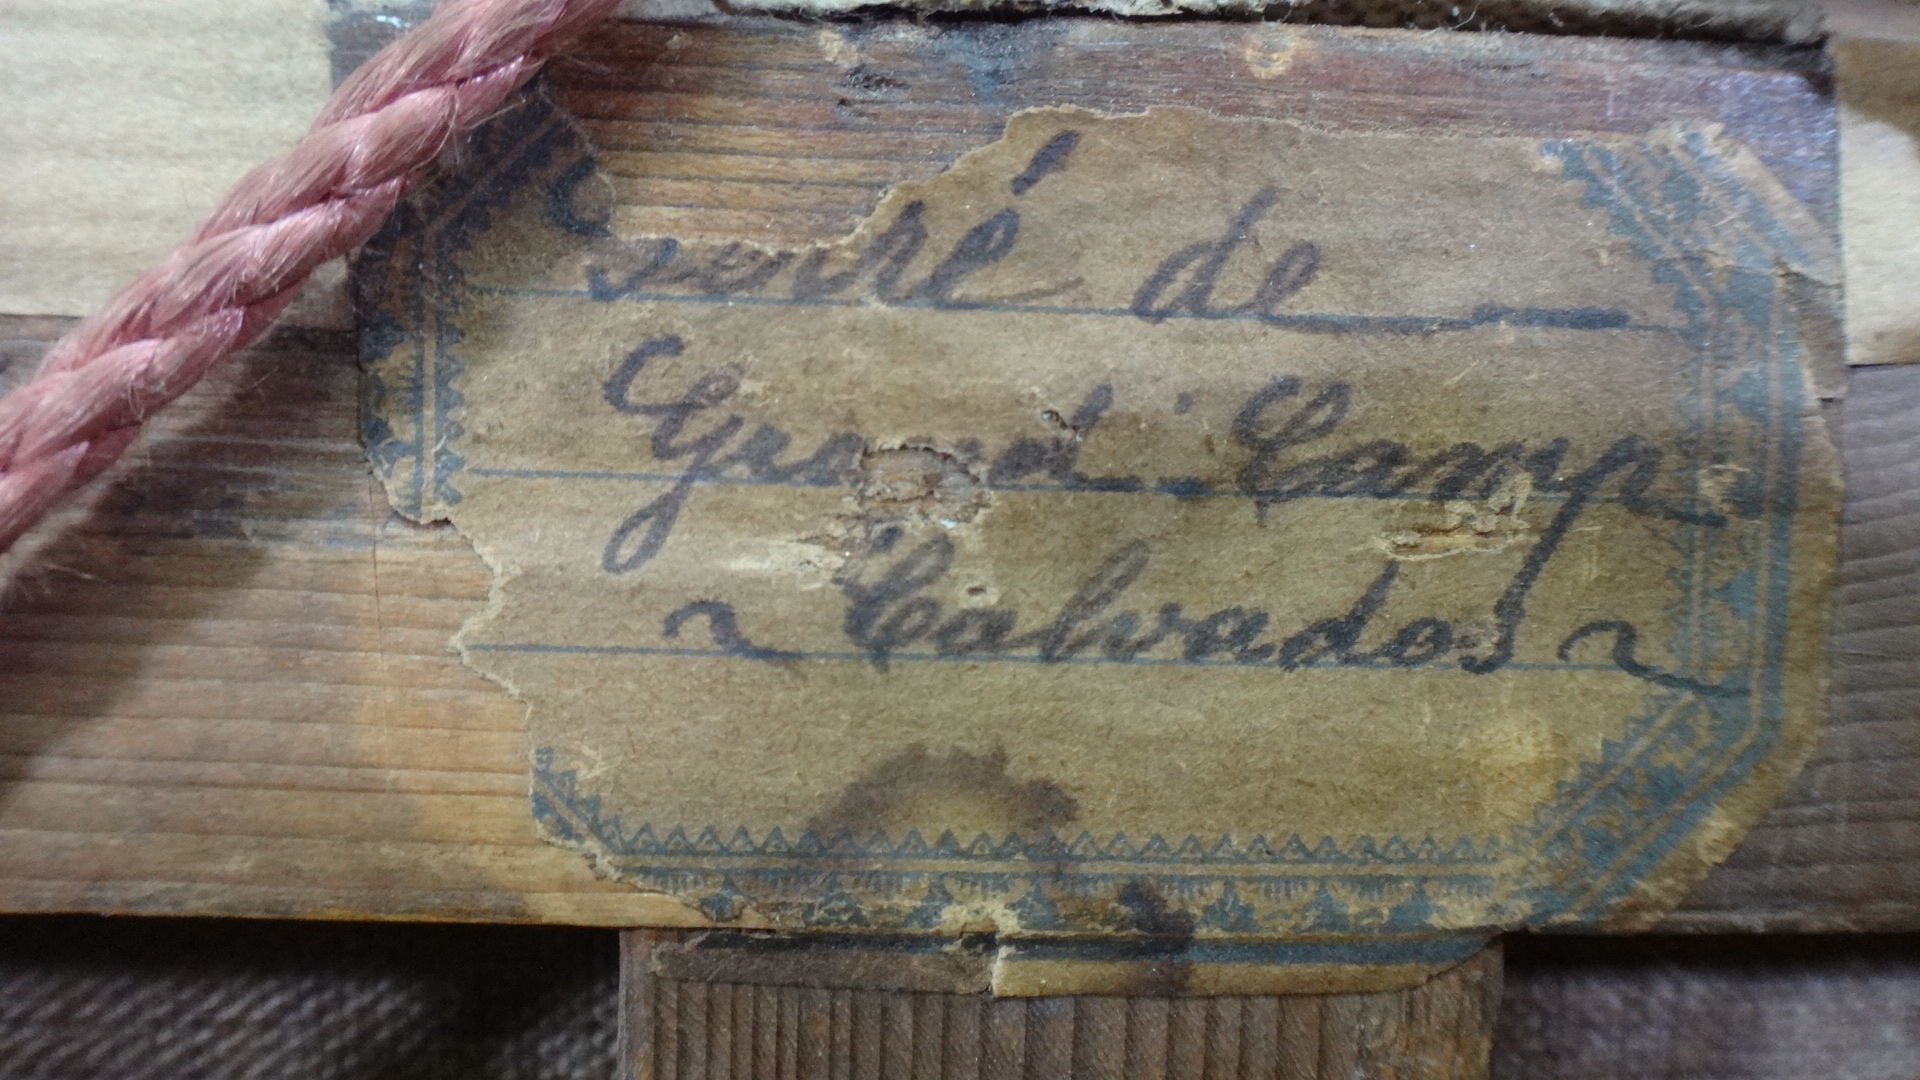 de
Grand. Camp
~ Calvados ~